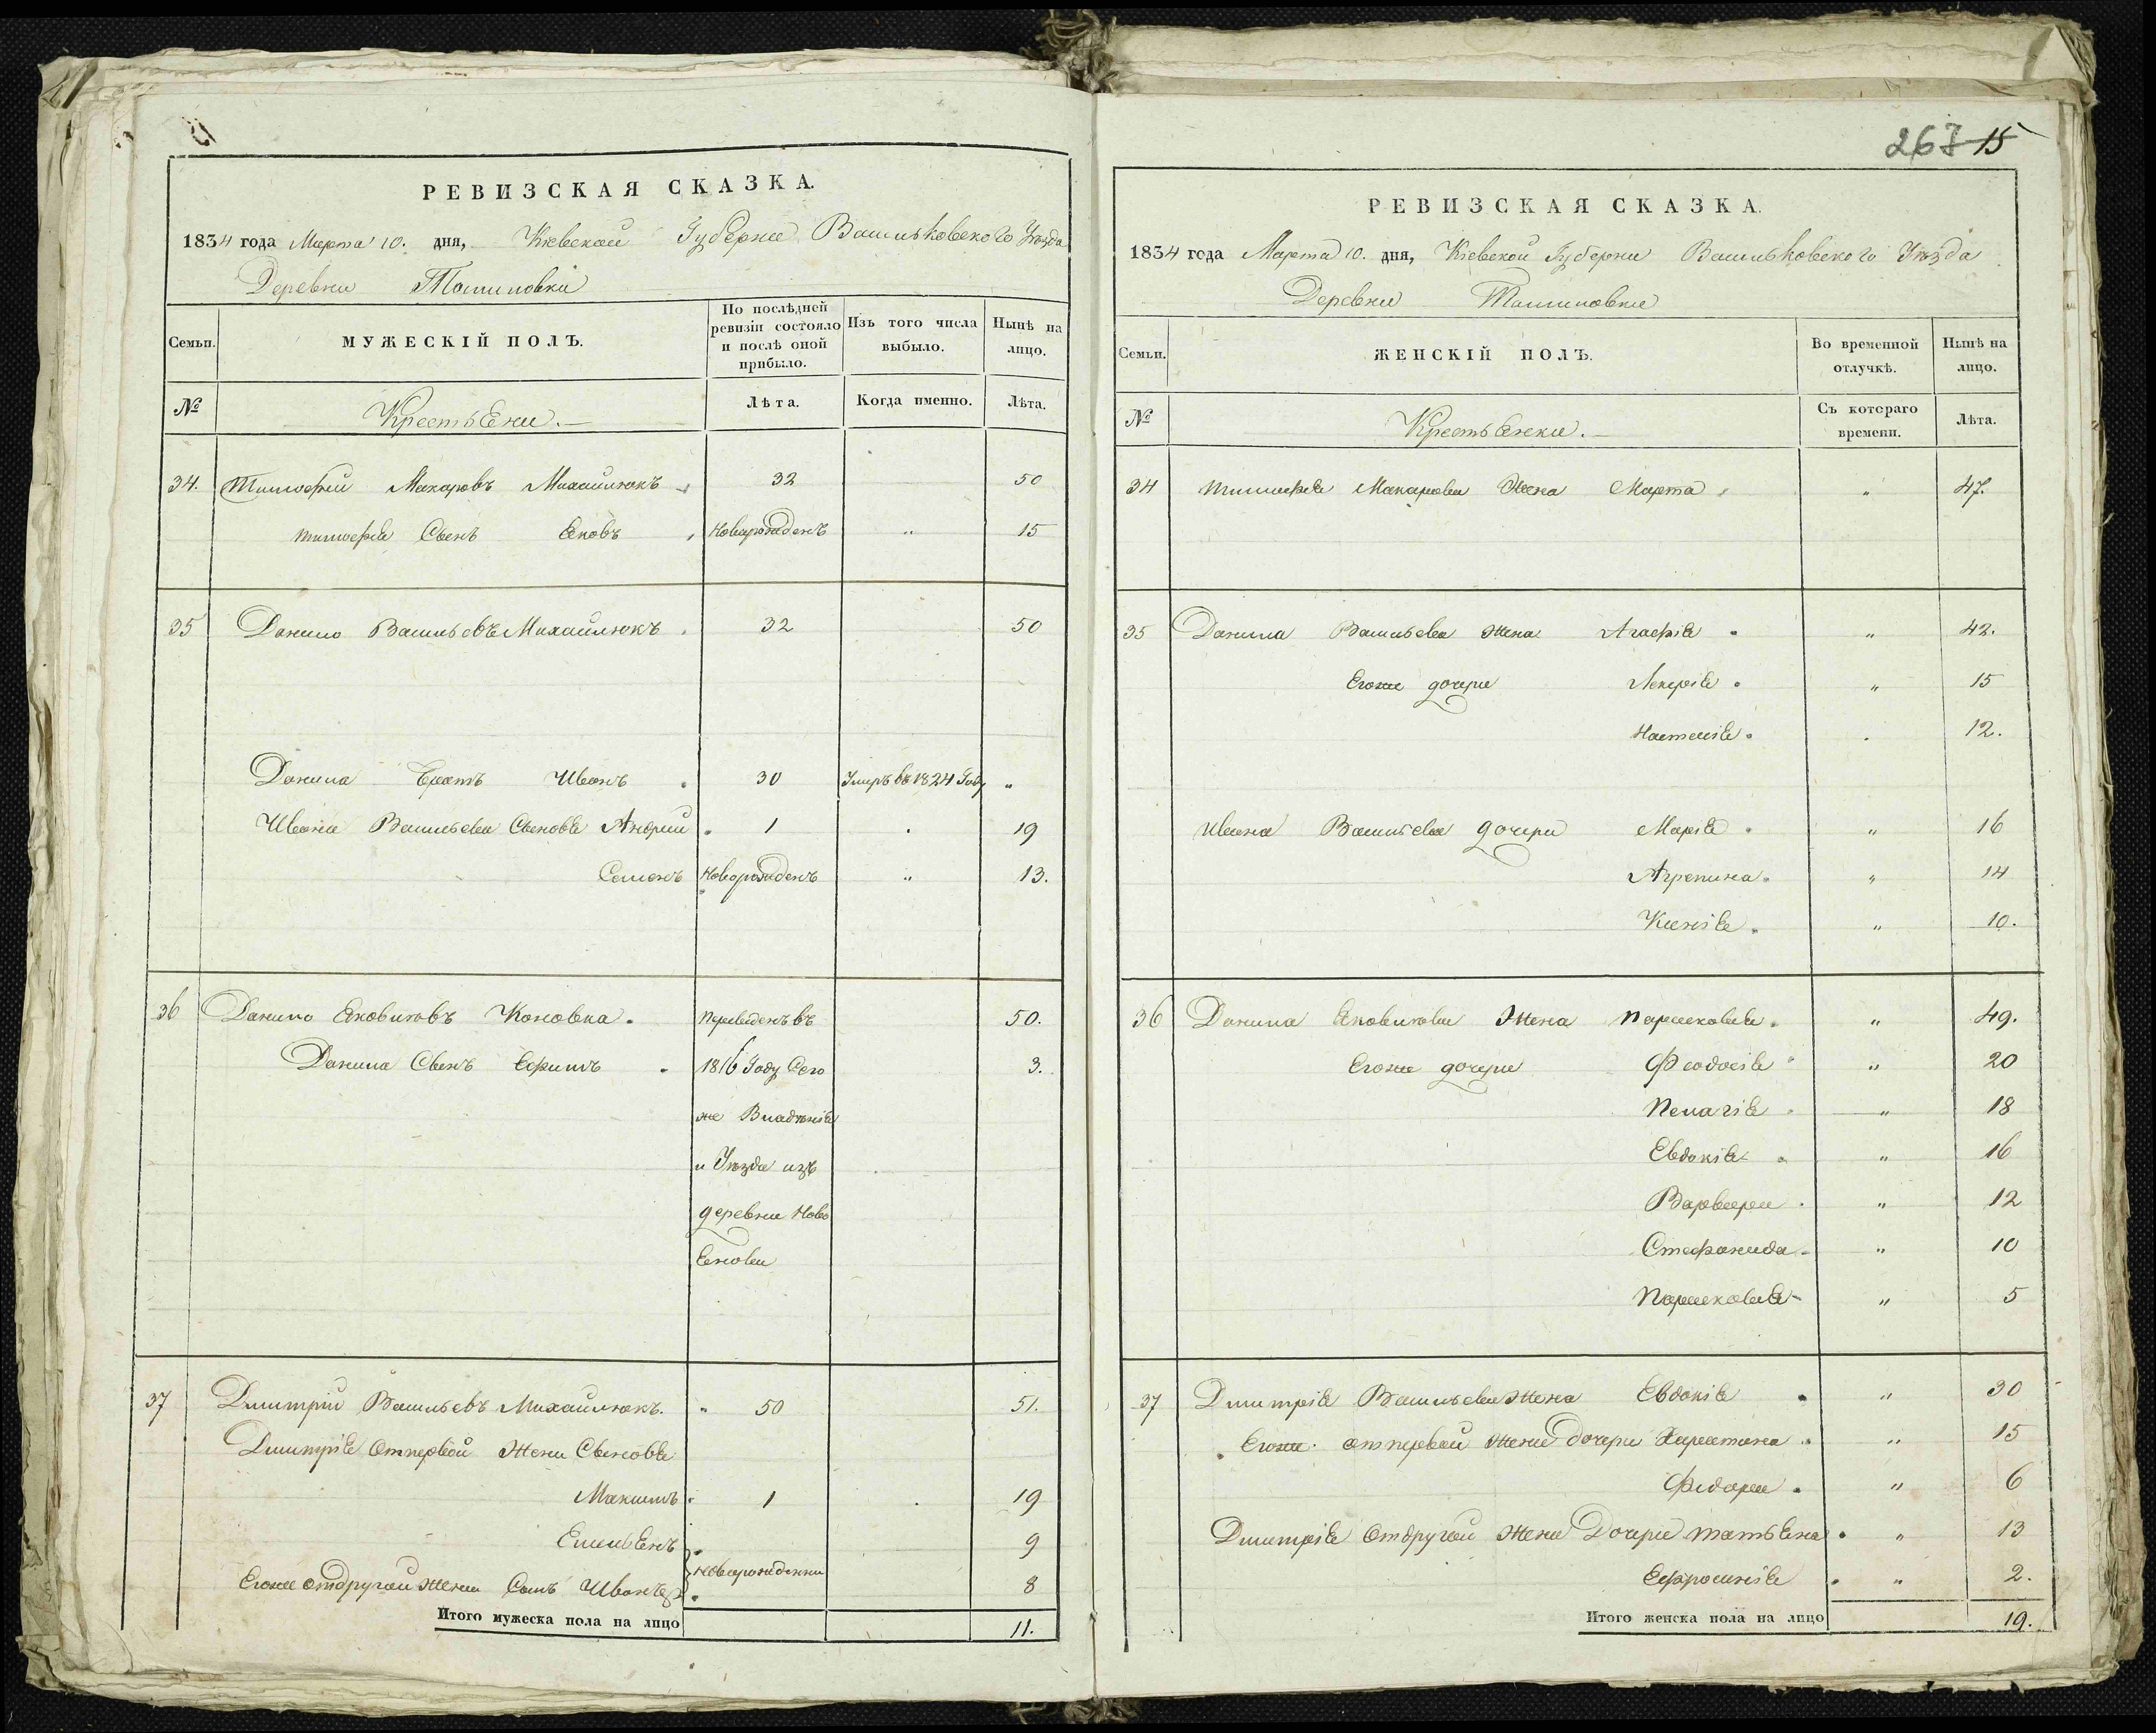 РЕВИЗСКАЯ СКАЗКА.
1834 года Марта 10. дня, Кіевской Губерніи Васильковского Уѣзда
Деревни
Семьи.
МУЖЕСКІЙ ПОЛЪ.
По послѣдней ревизіи состояло и послѣ оной прибыло.
Изъ того числа выбыло.
Нынѣ на лицо.
№
Крестьяни.
Лѣта.
Когда именно.
Лѣта.
34. Тимофей Макаровъ Михайлюкъ 32 50
Тимофея Сынъ Яковъ Новорожденъ " 15
35 Данило Васильевъ Михайлюкъ 32 50
Данила Братъ Иванъ 30 Умръ въ 1824 Году "
Ивана Васильева Сыновья Андрий 1 19
Семенъ Новорожденъ " 13.
36 Данило Яковиховъ Коновка. Переведенъ въ 50.
Данила Сынъ Ефимъ 1816 Году Сего 3.
же Владѣнія
и Уѣзда изъ
деревни Ново
37 Дмитрій Васильевъ Михайлюкъ. " 50 51.
Дмитрія От первой Жени Сыновья
Максимъ 1 19
Емельянъ 9
Егоже от другой жени Сынъ Иванъ Новорожденни 8
Итого мужеска пола на лицо 11.
267 15
РЕВИЗСКАЯ СКАЗКА.
1834 года Марта 10. дня, Кіевской Губерни Васильковского Уѣзда
Деревни
Семьи.
ЖЕНСКІЙ ПОЛЪ.
Во временной отлучкѣ.
Нынѣ на лицо.
№
Крестьянки.
Съ котораго времени.
Лѣта.
34 Тимофея Макарова Жена Марта " 47.
35 Данила Васильева жена Агафія " 42.
Егоже дочери Лекерія " 15
Настасія 12.
Ивана Васильева дочери Марія " 16
Агрепина " 14
Ксенія " 10.
36 Данила Яковихова Жена Парасковія " 49.
Егоже дочери Феодосія " 20
Пелагія " 18
Евдокія " 16
Варвара " 12
Стефанида " 10
Парасковія " 5
37 Дмитрія Васильева Жена Евдокія " 30
Егоже от первой жени дочери Харитина " 15
Федора " 6
Дмитрія От другой жени Дочери Татьяна " 13
Ефросинія " 2.
Итого женска пола на лицо 19.